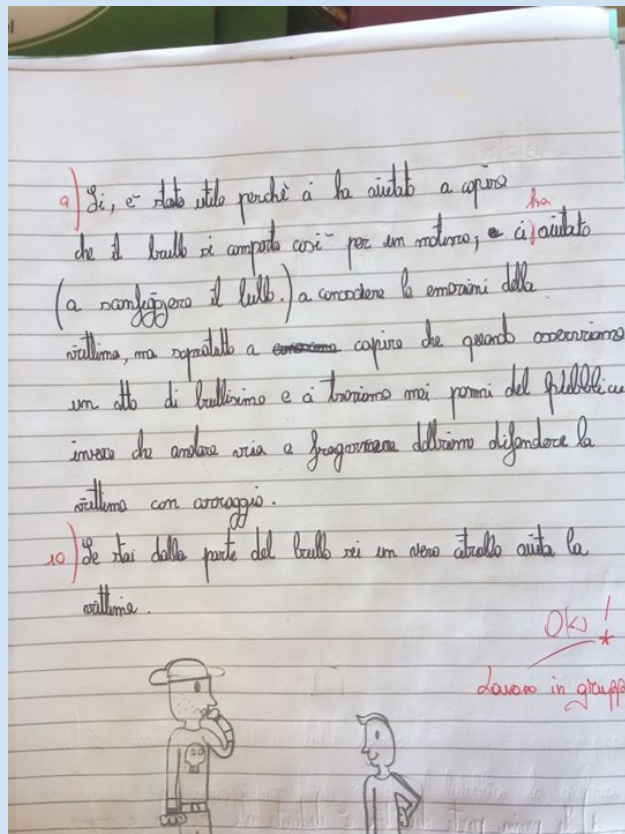 9) Si, e' stato utile perchè ci ha aiutato a capire
che il bullo si comporta così per un motivo; e ci ha aiutato
(a sconfiggere il bullo.) a conoscere le emozioni della
vittima, ma sopratutto a capire che quando osserviamo
un atto di bullismo e ci troviamo nei panni del pubblico
invece che andare via e fregarcene dobbiamo difendere la
vittima con coraggio.
10) Se stai dalla parte del bullo sei un vero citrullo aiuta la
vittima.
OK!
Lavoro in gruppo